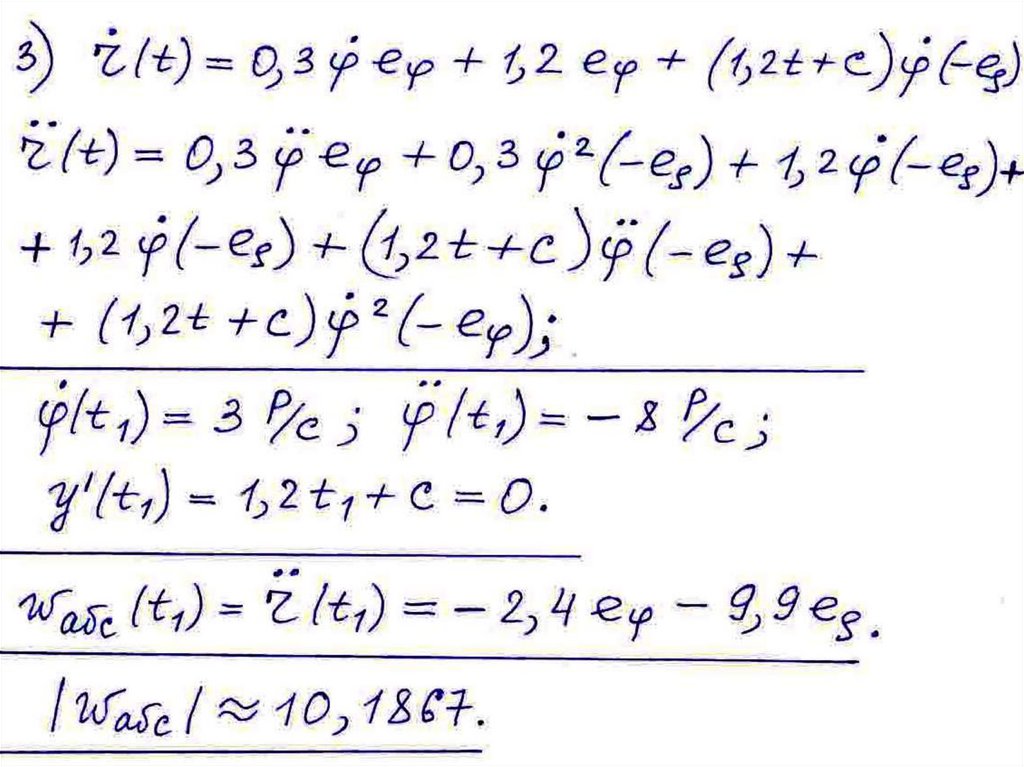 3) ṙ(t) = 0,3 φ̇ eφ + 1,2 eφ + (1,2t+c)φ̇(-eρ)
r̈(t) = 0,3 φ̈ eφ + 0,3 φ̇²(-eρ) + 1,2φ̇(-eρ)+
+ 1,2 φ̇(-eρ) + (1,2t+c)φ̈(-eρ)+
+ (1,2t+c)φ̇²(-eφ);
φ̇(t₁) = 3 р/с; φ̈(t₁) = - 8 р/с;
y'(t₁) = 1,2t₁+c = 0.
wабс(t₁) = r̈(t₁) = - 2,4 eφ - 9,9 eρ.
|wабс| ≈ 10,1867.